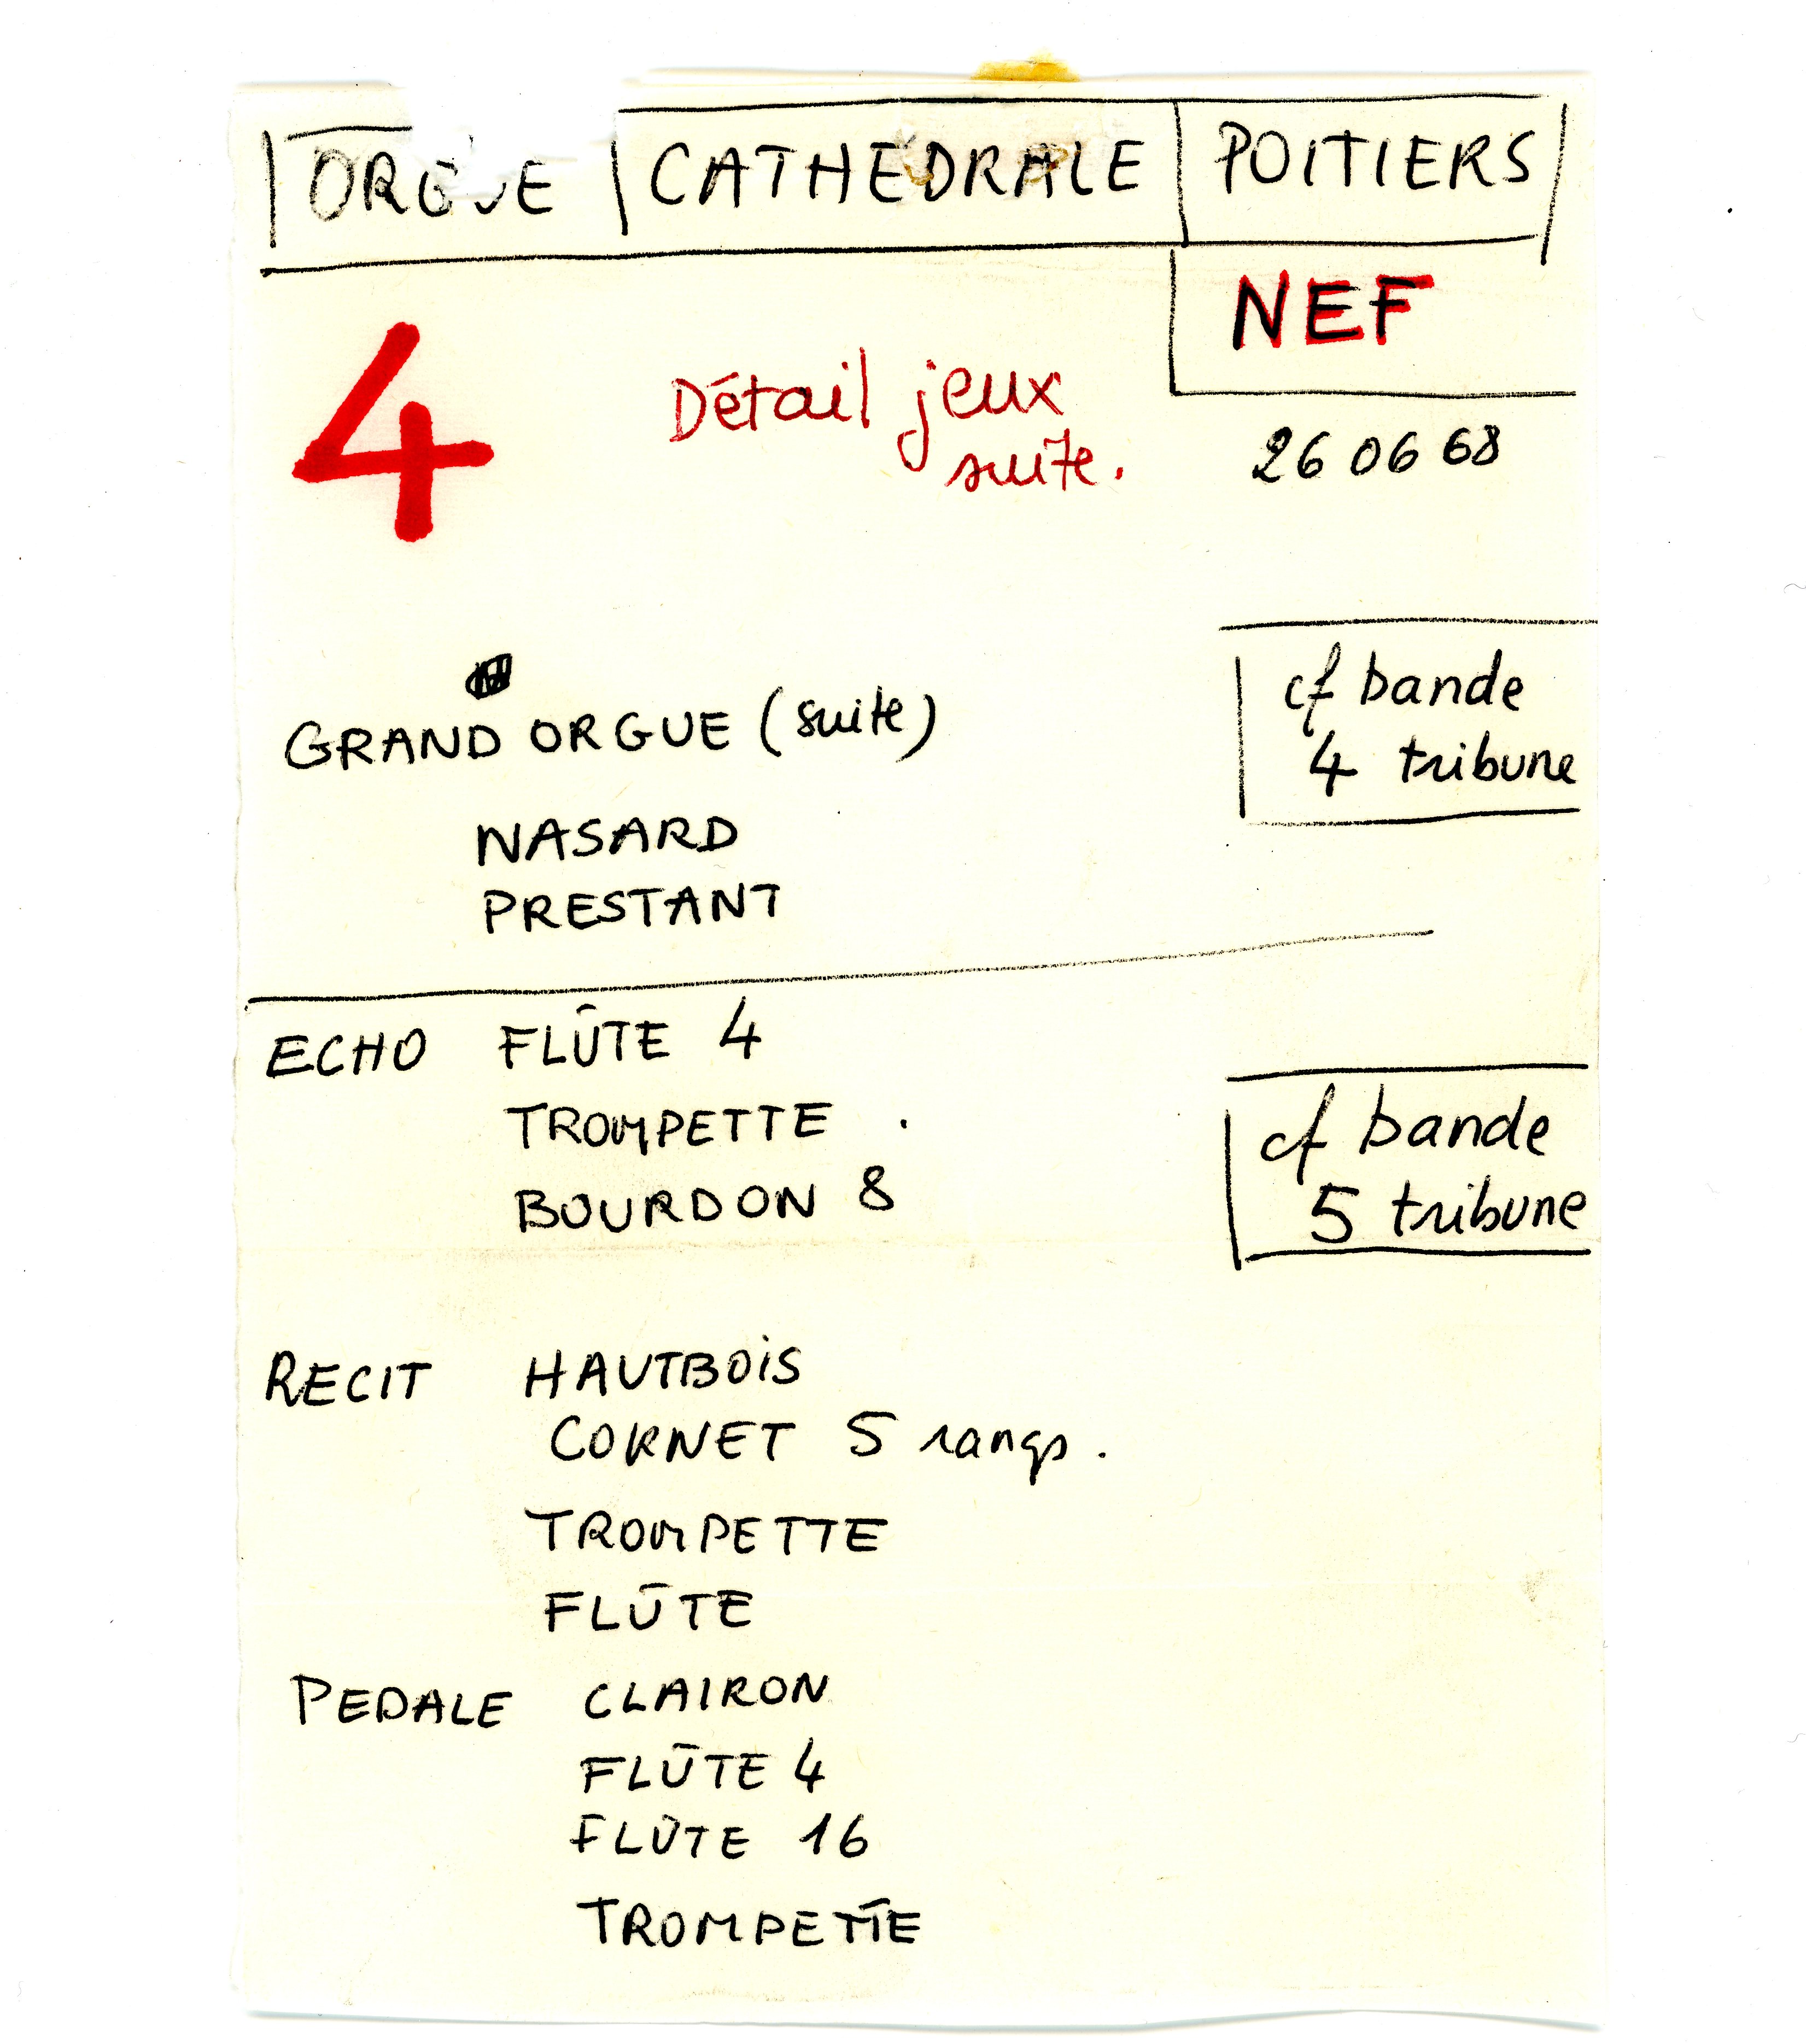 ORGUE CATHEDRALE POITIERS
NEF
4
Détail jeux
suite.
26 06 68
GRAND ORGUE (suite)
cf bande
4 tribune
NASARD
PRESTANT
ECHO FLÛTE 4
TROMPETTE .
BOURDON 8
cf bande
5 tribune
RECIT HAUTBOIS
CORNET 5 rangs.
TROMPETTE
FLÛTE
PEDALE CLAIRON
FLÛTE 4
FLÛTE 16
TROMPETTE